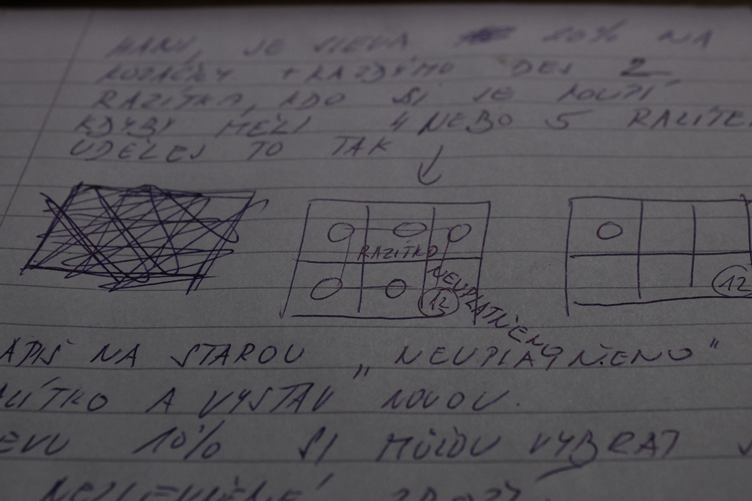 HANI, JE SLEVA 20% NA
KOZAČKY + KAŽDÝMU DEJ 2
RAZÍTKA, KDO SI JE KOUPÍ
KDYBY MĚLI 4 NEBO 5 RAZÍTEK
UDĚLEJ TO TAK
RAZÍTKO
NEUPLATNĚNO
12
12
NAPIŠ NA STAROU „NEUPLATNĚNO"
RAZÍTKO A VYSTAV NOVOU.
SLEVU 10% SI MŮŽOU VYBRAT